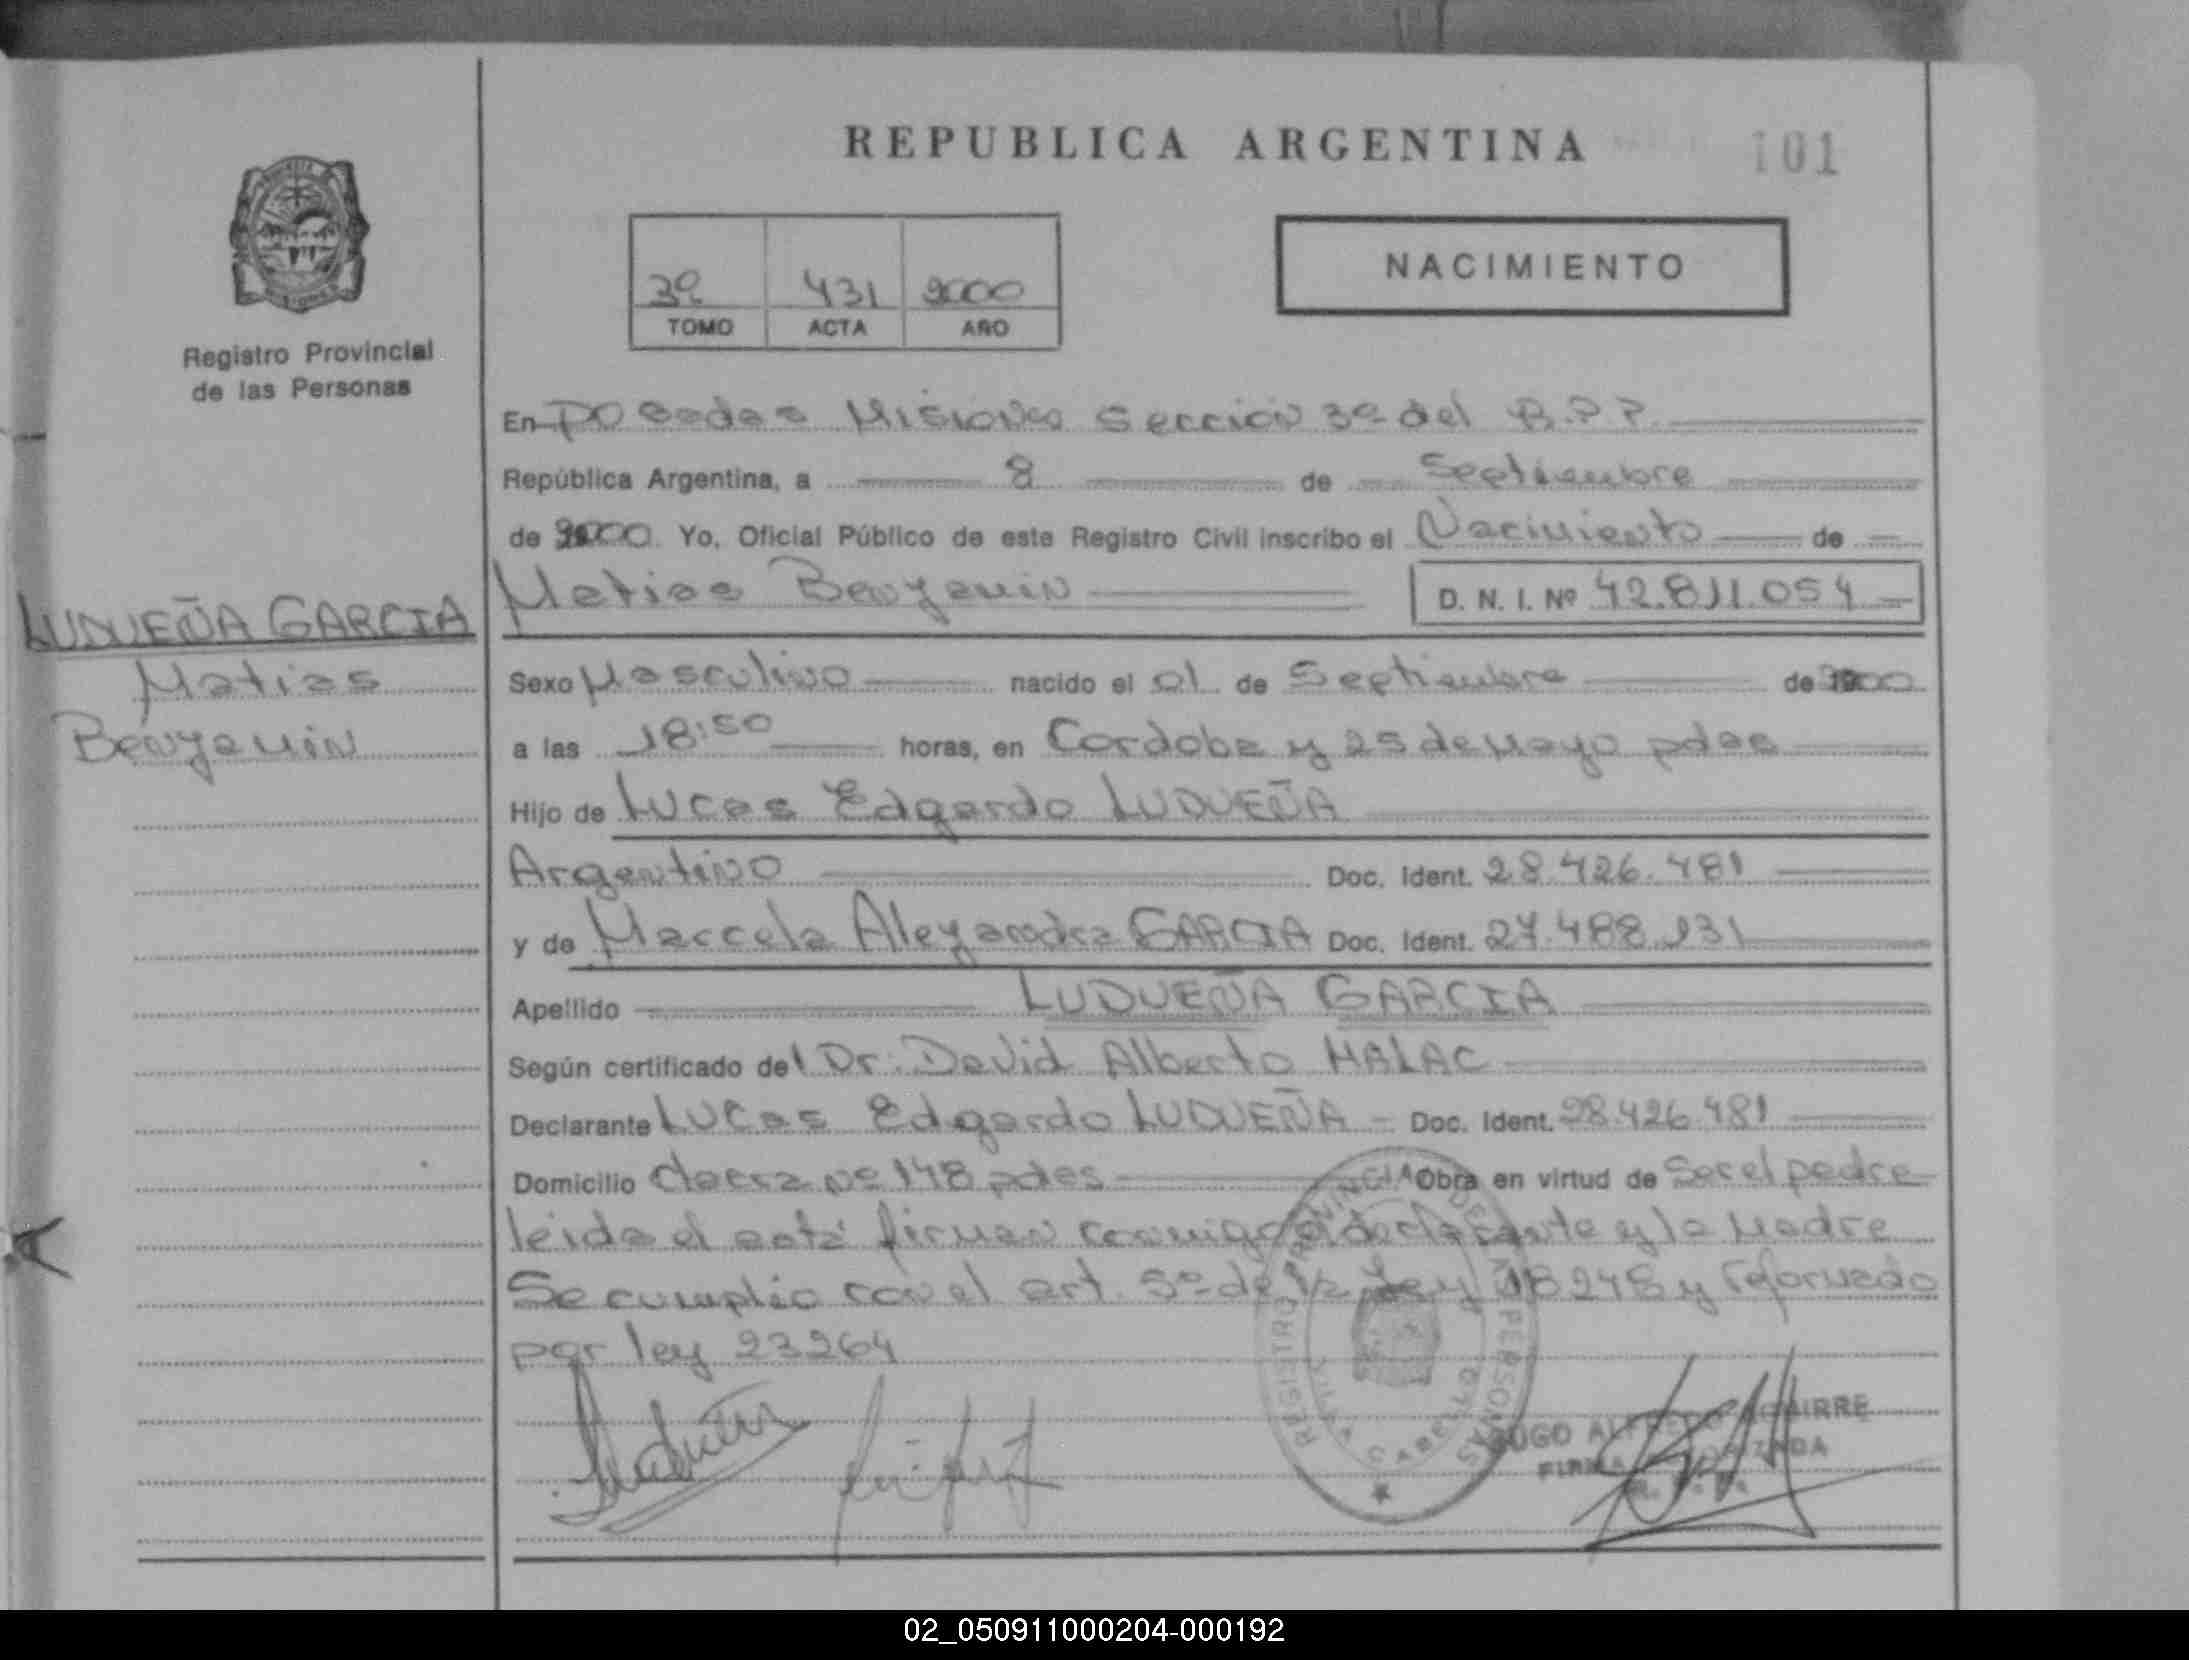 REPUBLICA ARGENTINA
101
Registro Provincial
de las Personas
3º 431 2000
TOMO ACTA AÑO
NACIMIENTO
En Posadas Misiones Sección 3º del R.P.P.
República Argentina, a 8 de Septiembre
de 2000 Yo, Oficial Público de este Registro Civil inscribo el Nacimiento de
Matias Benjamin D. N. I. Nº 42.811.054
LUDUEÑA GARCIA
Matias
Benjamin
Sexo Masculino nacido el 01 de Septiembre de 2000
a las 18:50 horas, en Cordoba y 25 de Mayo pdas
Hijo de Lucas Edgardo LUDUEÑA
Argentino Doc. Ident. 28.426.481
y de Marcela Alejandra GARCIA Doc. Ident. 27.488.131
Apellido LUDUEÑA GARCIA
Según certificado del Dr. David Alberto HALAC
Declarante Lucas Edgardo LUDUEÑA - Doc. Ident. 28.426.481
Domicilio Nº 148 pdas Obra en virtud de Ser el padre
leida el acta firman conmigo el declarante y la Madre
Se cumplio con el art. 5º de la Ley 18248 y reformado
por ley 23264
REGISTRO PROVINCIAL DE LAS PERSONAS
VILLA CABELLO
HUGO ALFREDO AGUIRRE
FIRMA AUTORIZADA
R. P. P.
02_050911000204-000192